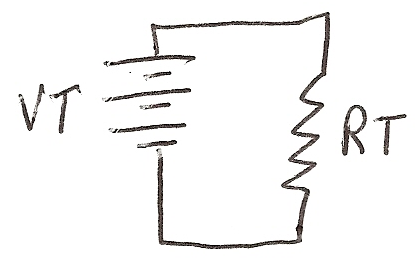 VT
RT